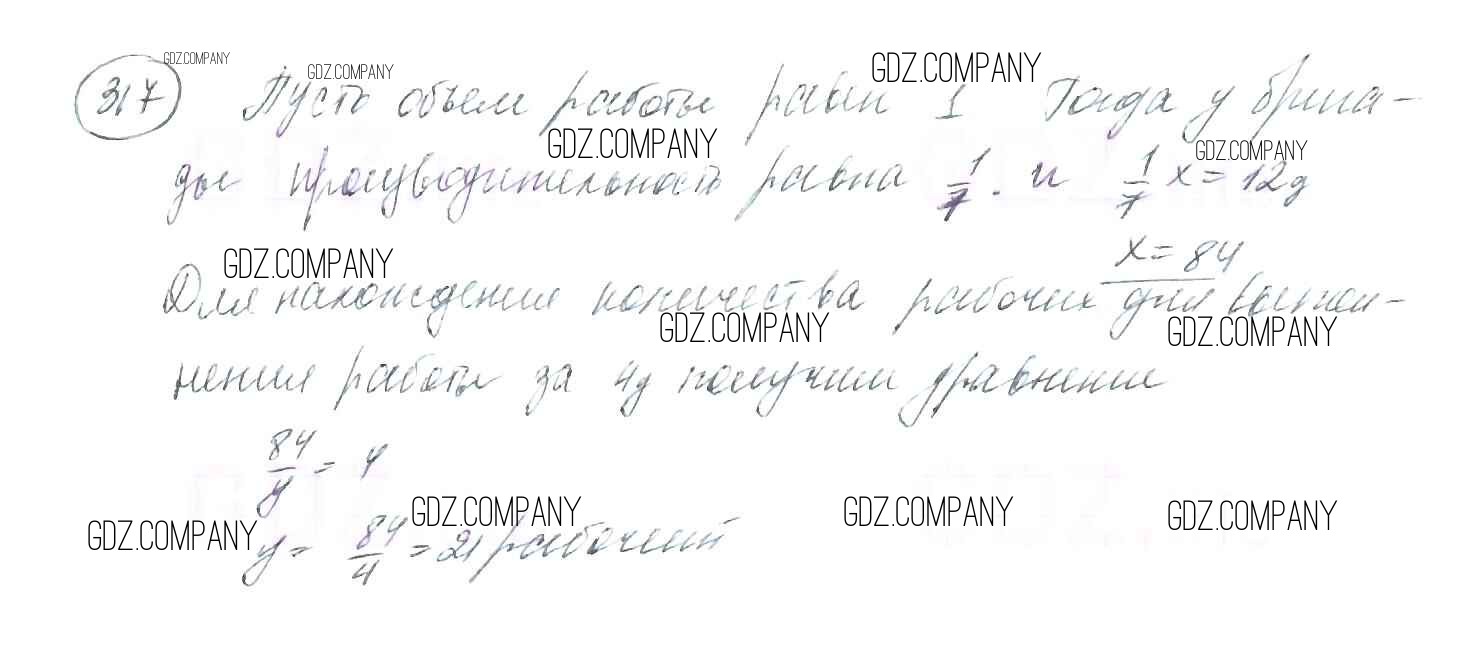 GDZ.COMPANY
317 Пусть объем работы равен 1 Тогда у брига-
GDZ.COMPANY GDZ.COMPANY
GDZ.COMPANY GDZ.COMPANY
ды производительность равна 1/7. и 1/7 x = 12д
x = 84
GDZ.COMPANY
Для нахождения количества рабочих для выпол-
GDZ.COMPANY GDZ.COMPANY
нения работы за 4д получим уравнение
84/y = 4
GDZ.COMPANY GDZ.COMPANY GDZ.COMPANY GDZ.COMPANY
y = 84/4 = 21 рабочий